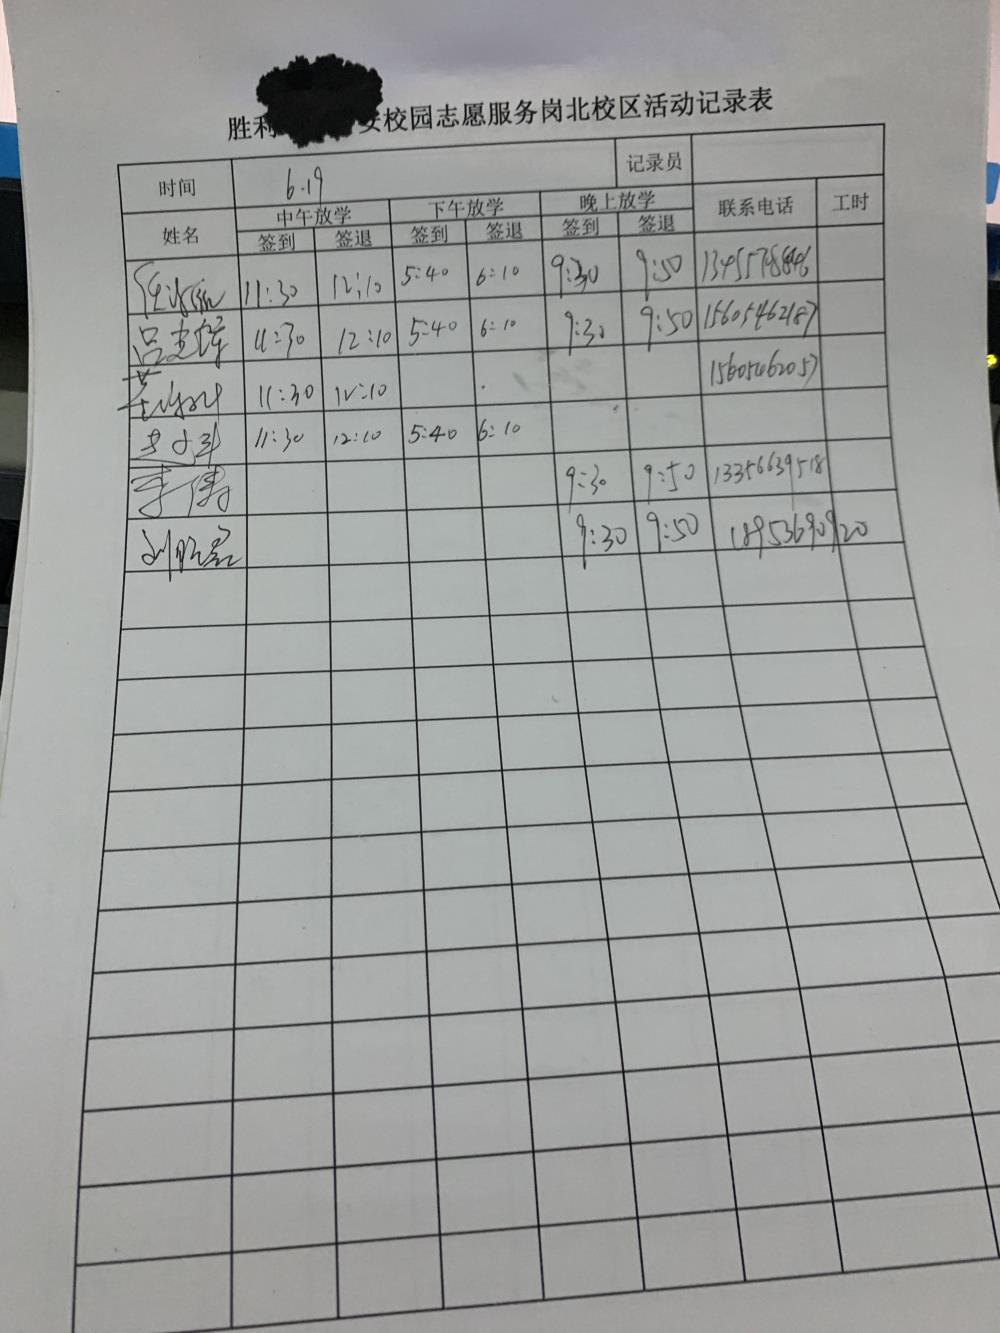 胜利 安校园志愿服务岗北校区活动记录表
时间 6.19 记录员
姓名 中午放学 下午放学 晚上放学 联系电话 工时
签到 签退 签到 签退 签到 签退
11:30 12:10 5:40 6:10 9:30 9:50
吕 11:30 12:10 5:40 6:10 9:30 9:50 15605462187
11:30 12:10 15605462057
11:30 12:10 5:40 6:10
李涛 9:30 9:50 13356639518
刘 9:30 9:50 18953690920